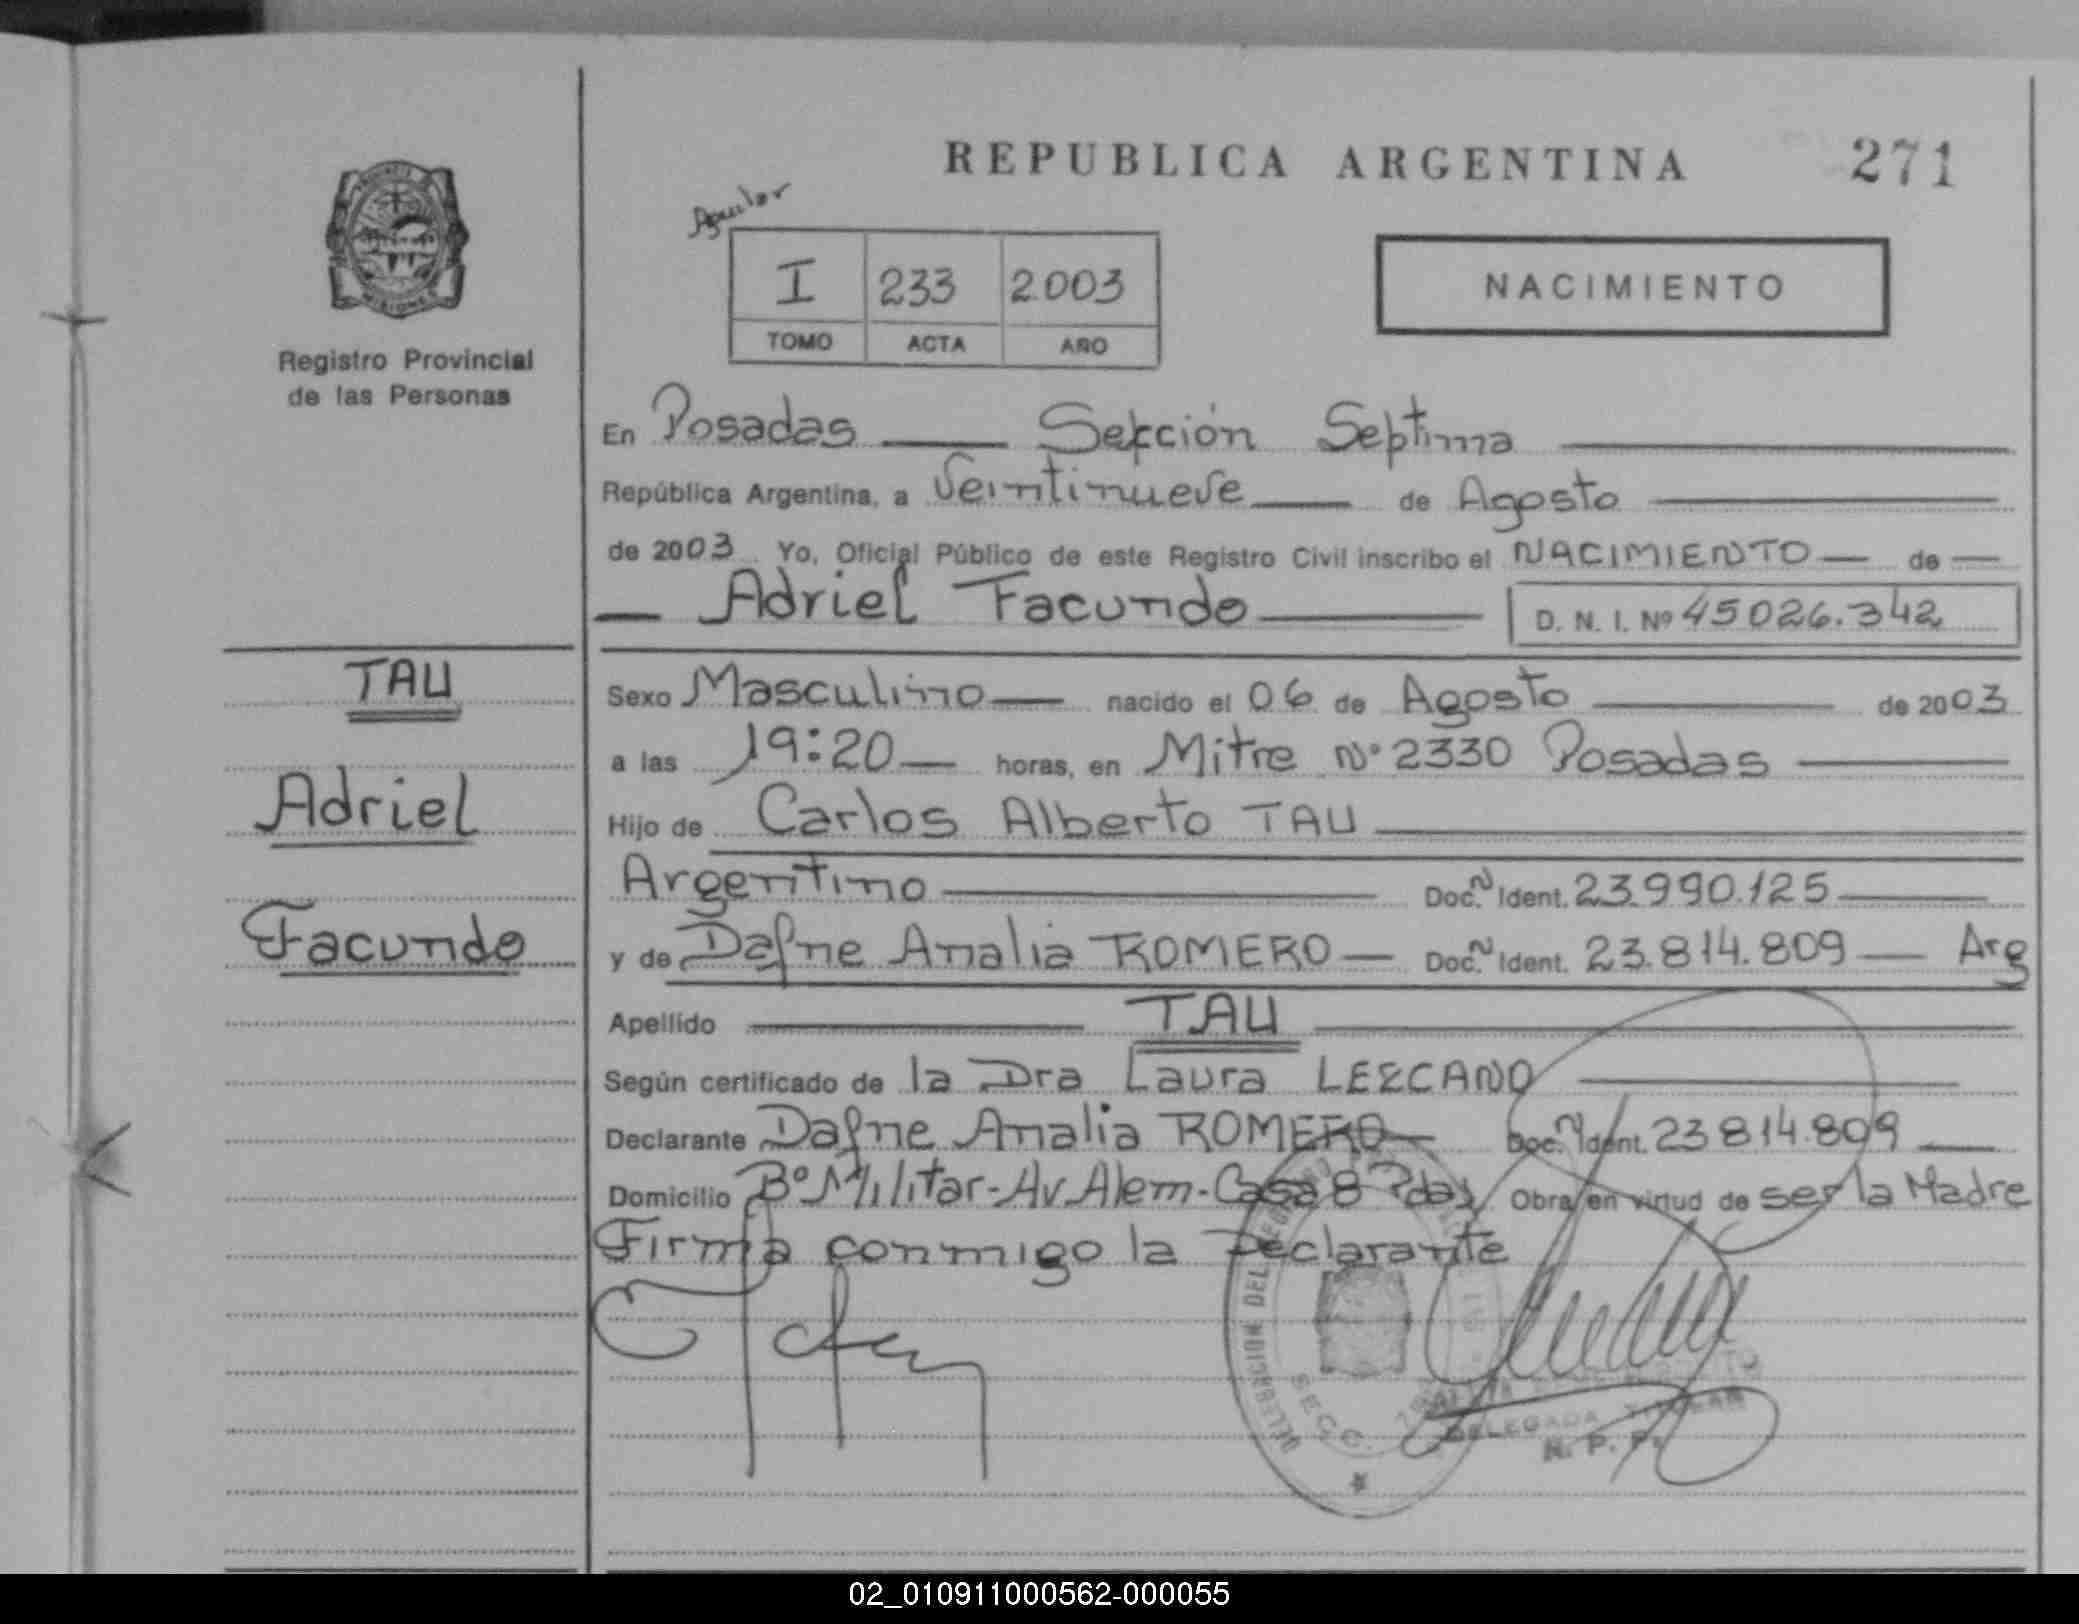 REPUBLICA ARGENTINA 271
Aguilar
I 233 2003
TOMO ACTA AÑO
NACIMIENTO
PROVINCIA DE MISIONES
Registro Provincial
de las Personas
En Posadas Sección Septima
República Argentina, a Veintinueve de Agosto
de 2003 Yo, Oficial Público de este Registro Civil inscribo el NACIMIENTO de
Adriel Facundo D. N. I. Nº 45026.342
TAU
Adriel
Facundo
Sexo Masculino nacido el 06 de Agosto de 2003
a las 19:20 horas, en Mitre Nº 2330 Posadas
Hijo de Carlos Alberto TAU
Argentino Doc. N Ident. 23.990.125
y de Dafne Analia ROMERO Doc. N Ident. 23.814.809 Arg
Apellido TAU
Según certificado de la Dra Laura LEZCANO
Declarante Dafne Analia ROMERO Doc. N Ident. 23814.809
Domicilio Bº Militar-Av. Alem-Casa 8 Pdas Obra en virtud de ser la Madre
Firma conmigo la Declarante
SECC.
DELEGADA TITULAR
R. P. P.
02_010911000562-000055